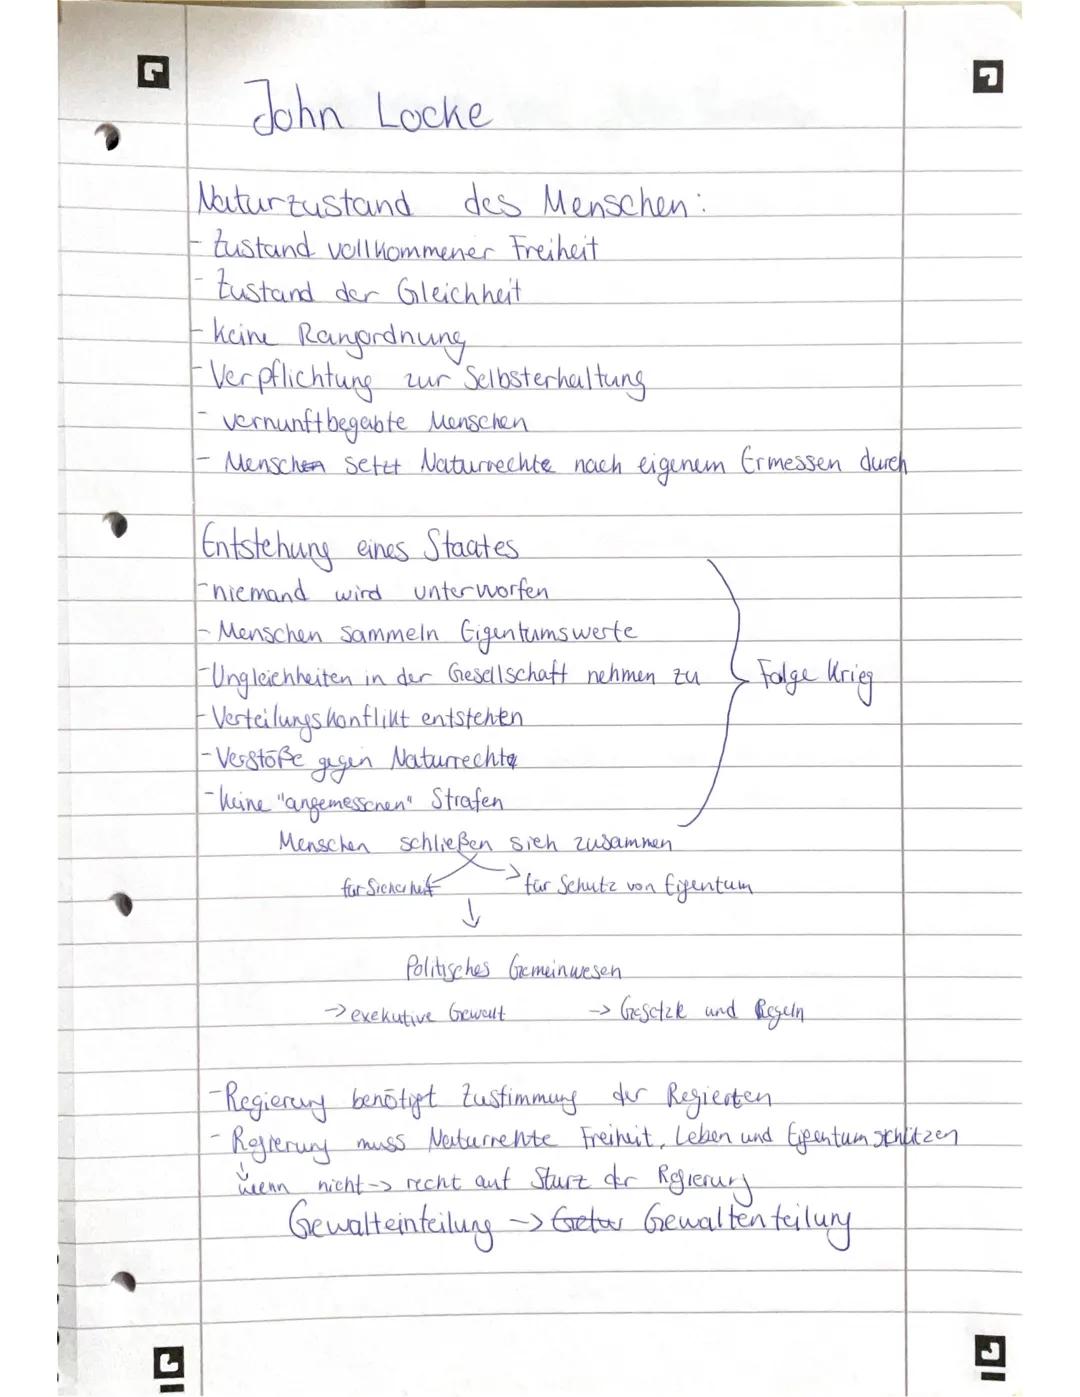 John Locke
Naturzustand des Menschen:
- Zustand vollkommener Freiheit
- Zustand der Gleichheit
- keine Rangordnung
- Verpflichtung zur Selbsterhaltung
- vernunftbegabte Menschen
- Menschen setzt Naturrechte nach eigenem Ermessen durch
Entstehung eines Staates
- niemand wird unterworfen
- Menschen sammeln Eigentumswerte
- Ungleichheiten in der Gesellschaft nehmen zu
Folge Krieg
- Verteilungskonflikt entstehen
- Verstöße gegen Naturrechte
- keine "angemessenen" Strafen
Menschen schließen sich zusammen
für Sicherheit → für Schutz von Eigentum
↓
Politisches Gemeinwesen
→ exekutive Gewalt → Gesetzte und Regeln
- Regierung benötigt Zustimmung der Regierten
- Regierung muss Naturrehte Freiheit, Leben und Eigentum schützen
↓
wenn nicht → recht auf Sturz der Regierung
Gewalteinteilung → Gewaltenteilung